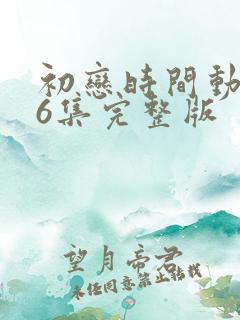 初戀時間動
6集完整版
望月帝君
未任同意禁止轉載